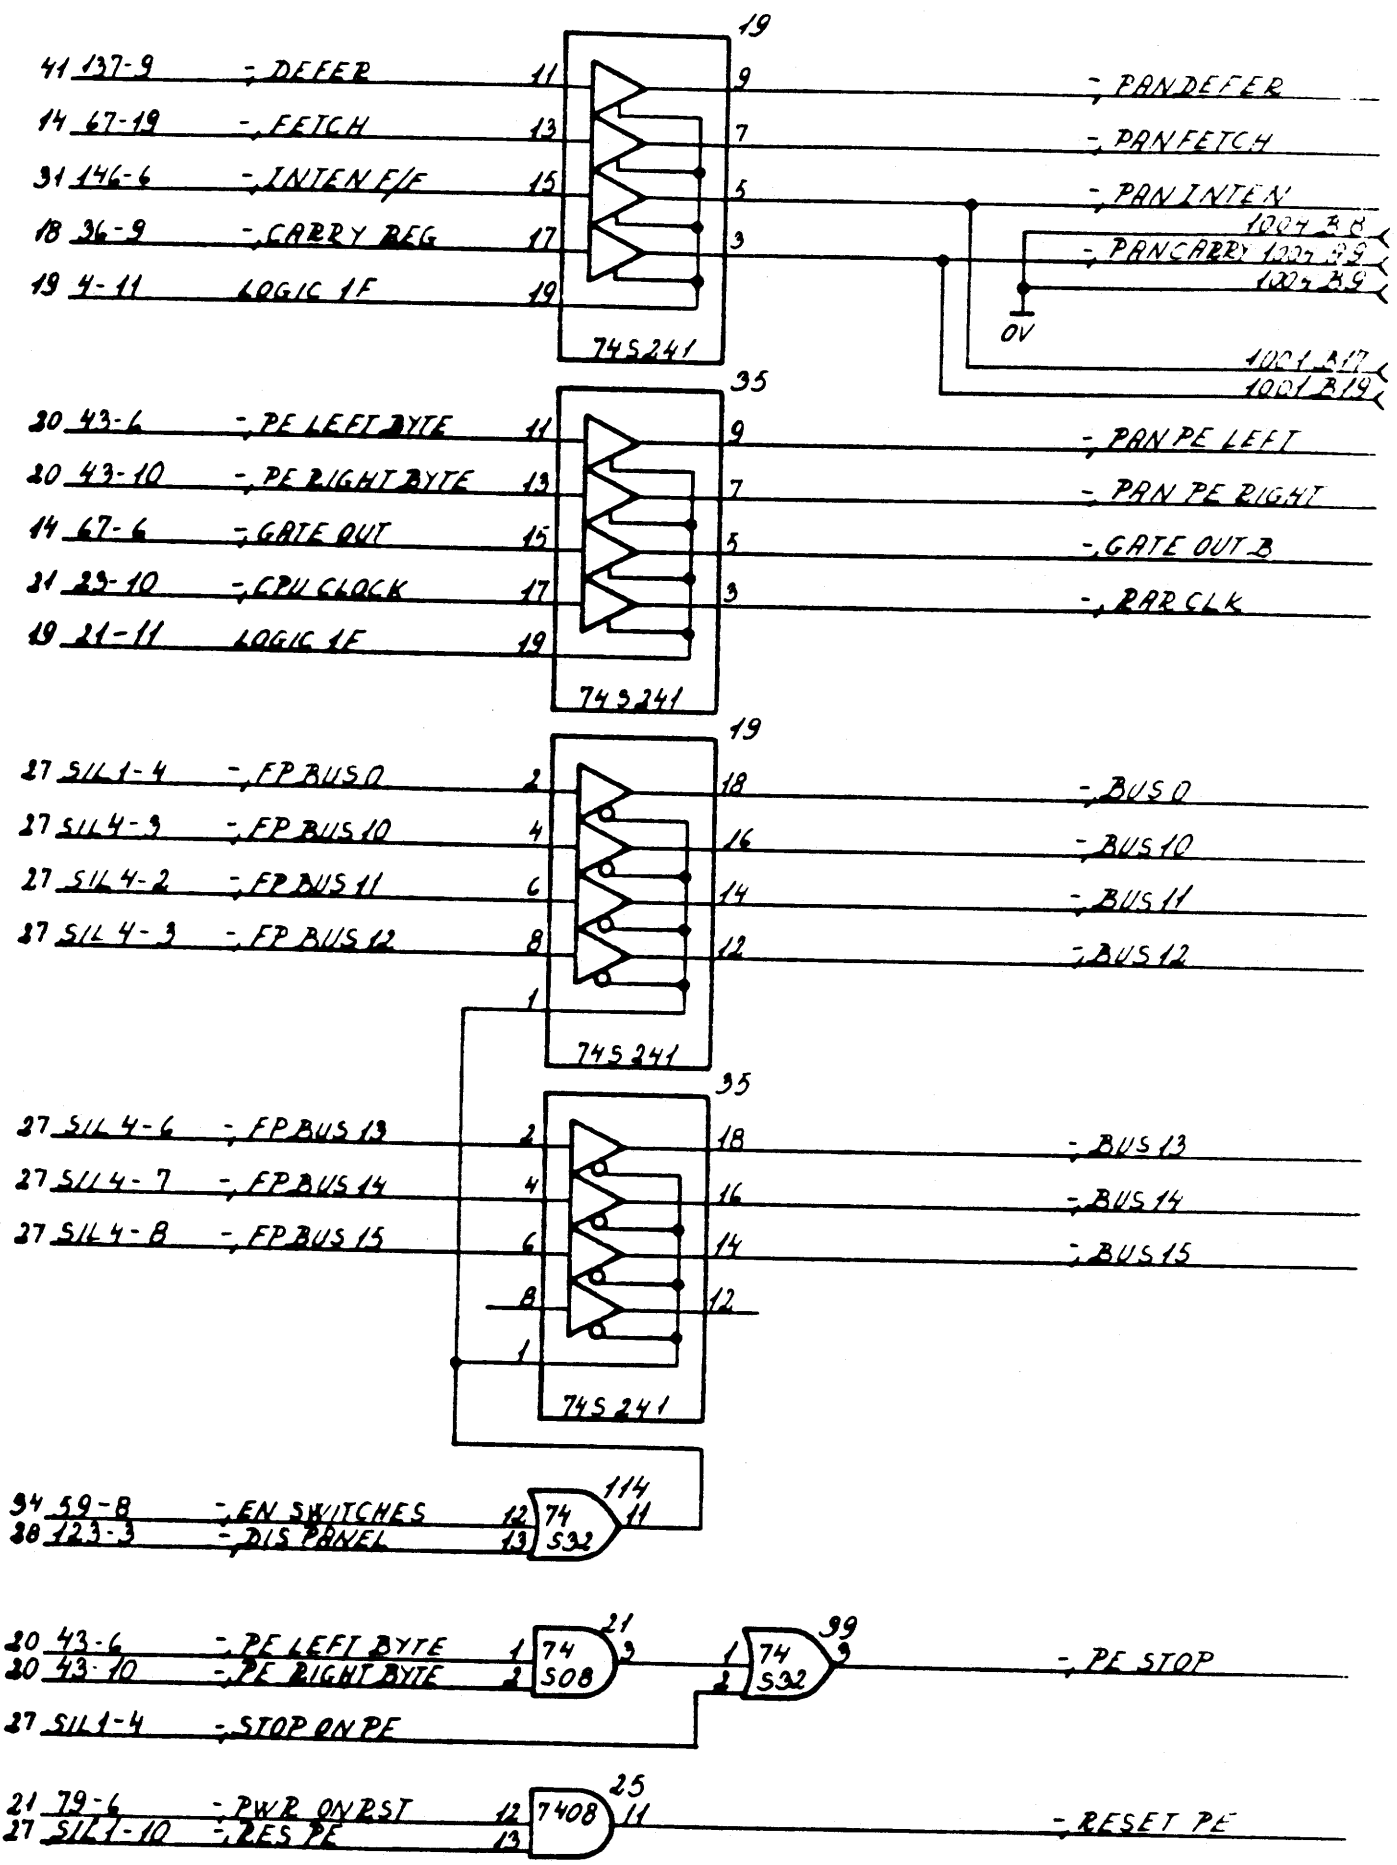 19
41 137-9 -, DEFER 11 9 -, PANDEFER
14 67-19 -, FETCH 13 7 -, PANFETCH
31 146-6 -, INTEN F/F 15 5 -, PAN INTEN
1004 B8
18 36-9 -, CARRY REG 17 3 -, PANCARRY 1004 A9
19 4-11 LOGIC 1F 19 1004 B9
0V
74S241
1001 B17
35 1001 B19
20 43-6 -, PE LEFT BYTE 11 9 -, PAN PE LEFT
20 43-10 -, PE RIGHT BYTE 13 7 -, PAN PE RIGHT
14 67-6 -, GATE OUT 15 5 -, GATE OUT B
21 23-10 -, CPU CLOCK 17 3 -, RAR CLK
19 21-11 LOGIC 1F 19
74S241
19
27 SIL1-4 -, FP BUS 0 2 18 -, BUS 0
27 SIL4-3 -, FP BUS 10 4 16 -, BUS 10
27 SIL4-2 -, FP BUS 11 6 14 -, BUS 11
27 SIL4-3 -, FP BUS 12 8 12 -, BUS 12
1
74S241
35
27 SIL4-6 -, FP BUS 13 2 18 -, BUS 13
27 SIL4-7 -, FP BUS 14 4 16 -, BUS 14
27 SIL4-8 -, FP BUS 15 6 14 -, BUS 15
8 12
1
74S241
114
34 59-8 -, EN SWITCHES 12 74 11
28 123-3 -, DIS PANEL 13 S32
21 39
20 43-6 -, PE LEFT BYTE 1 74 3 1 74 3 -, PE STOP
20 43-10 -, PE RIGHT BYTE 2 S08 2 S32
27 SIL1-4 -, STOP ON PE
25
21 79-6 -, PWR ON RST 12 7408 11 -, RESET PE
27 SIL1-10 -, RES PE 13